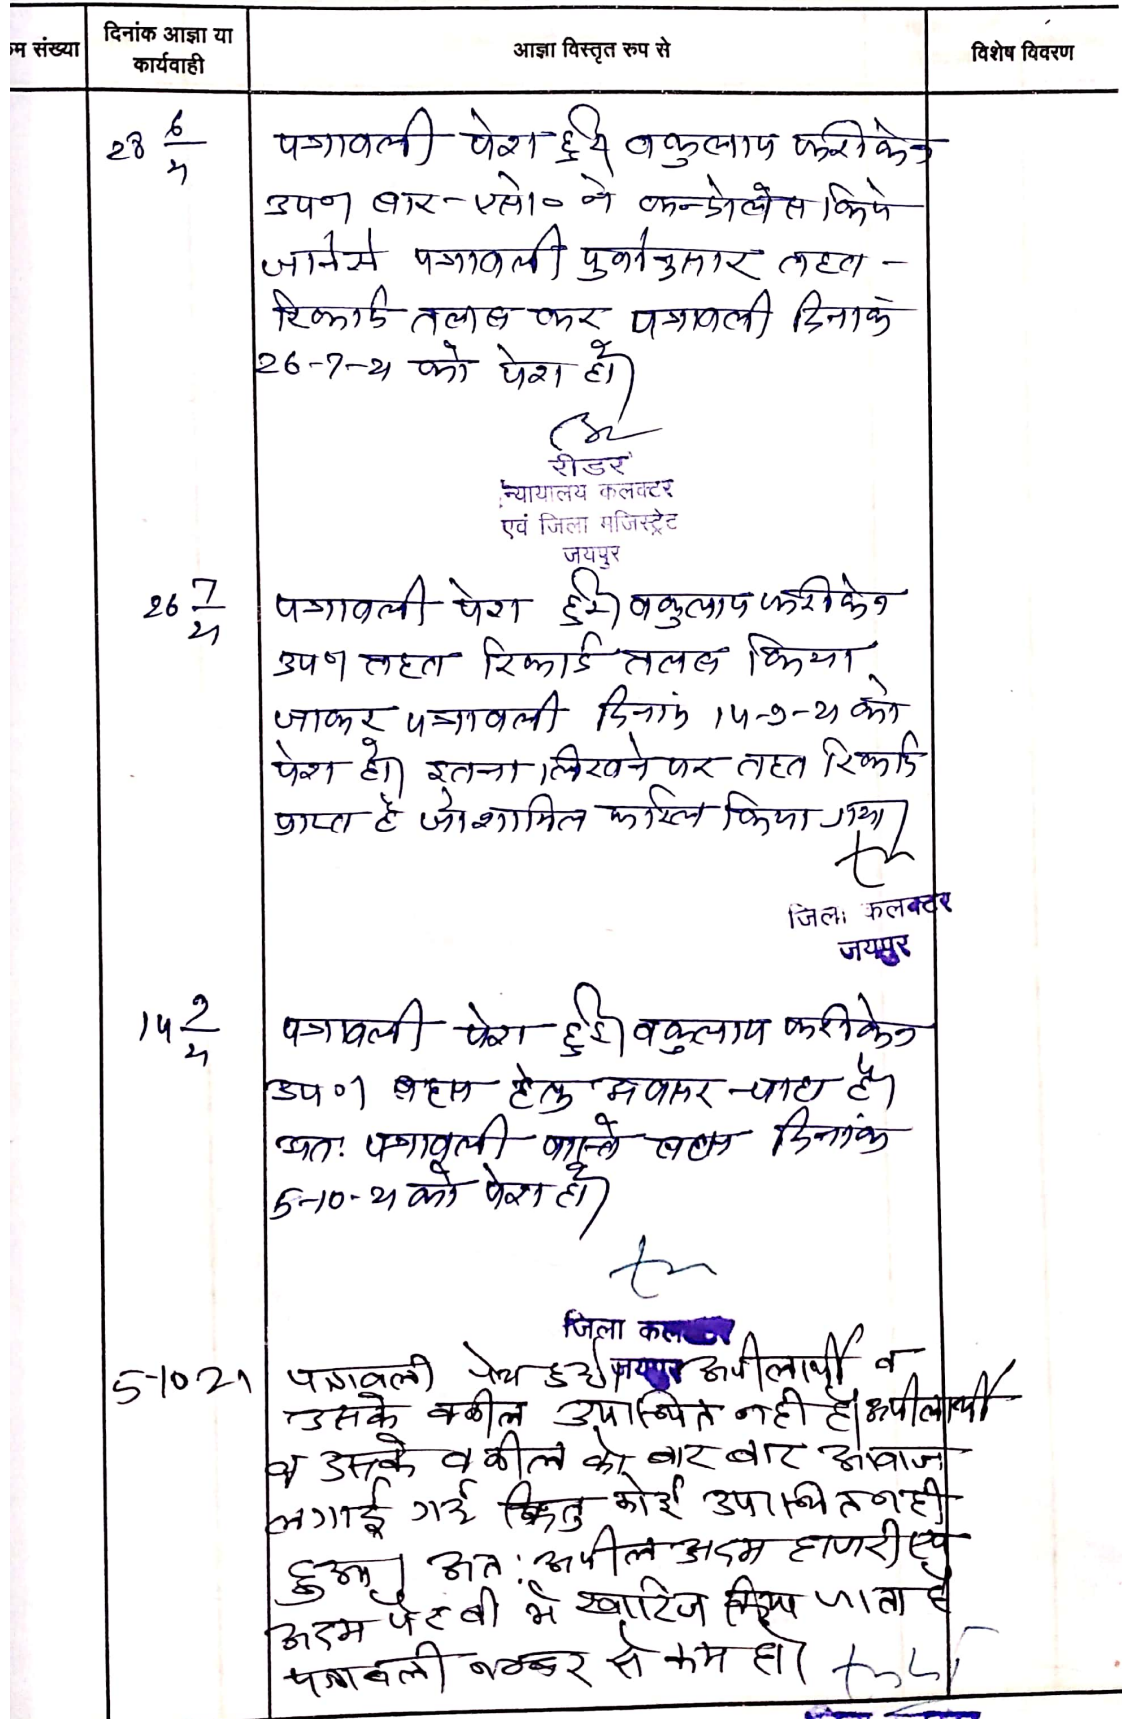 म संख्या
दिनांक आज्ञा या
कार्यवाही
आज्ञा विस्तृत रुप से
विशेष विवरण
28 6/21
पत्रावली पेश हुई। वकुलाय फरीकेन
उप० बार-एसो० ने कन्डोलेंस किये
जानेसे पत्रावली पुर्वानुसार तहत -
रिकार्ड तलब कर पत्रावली दिनांक
26-7-21 को पेश हो।
रीडर
न्यायालय कलक्टर
एवं जिला मजिस्ट्रेट
जयपुर
26 7/21
पत्रावली पेश हुई। वकुलाय फरीकेन
उप० तहत रिकार्ड तलब किया
जाकर पत्रावली दिनांक 14-9-21 को
पेश हो। इतना लिखने पर तहत रिकार्ड
प्राप्त है जो शामिल फाईल किया गया।
जिला कलक्टर
जयपुर
14 9/21
पत्रावली पेश हुई। वकुलाय फरीकेन
उप० बहस हेतु अवसर चाहा है।
अतः पत्रावली वास्ते बहस दिनांक
5-10-21 को पेश हो।
जिला कलक्टर
जयपुर
5-10 21
पत्रावली पेश हुई। अपीलार्थी व
उसके वकील उपस्थित नही है। अपीलार्थी
व उसके वकील को बार बार आवाज
लगाई गई किंतु कोई उपस्थित नही
हुआ। अतः अपील अदम हाजरी एवं
अदम पैरवी में खारिज किया जाता है
पत्रावली नम्बर से कम हो।